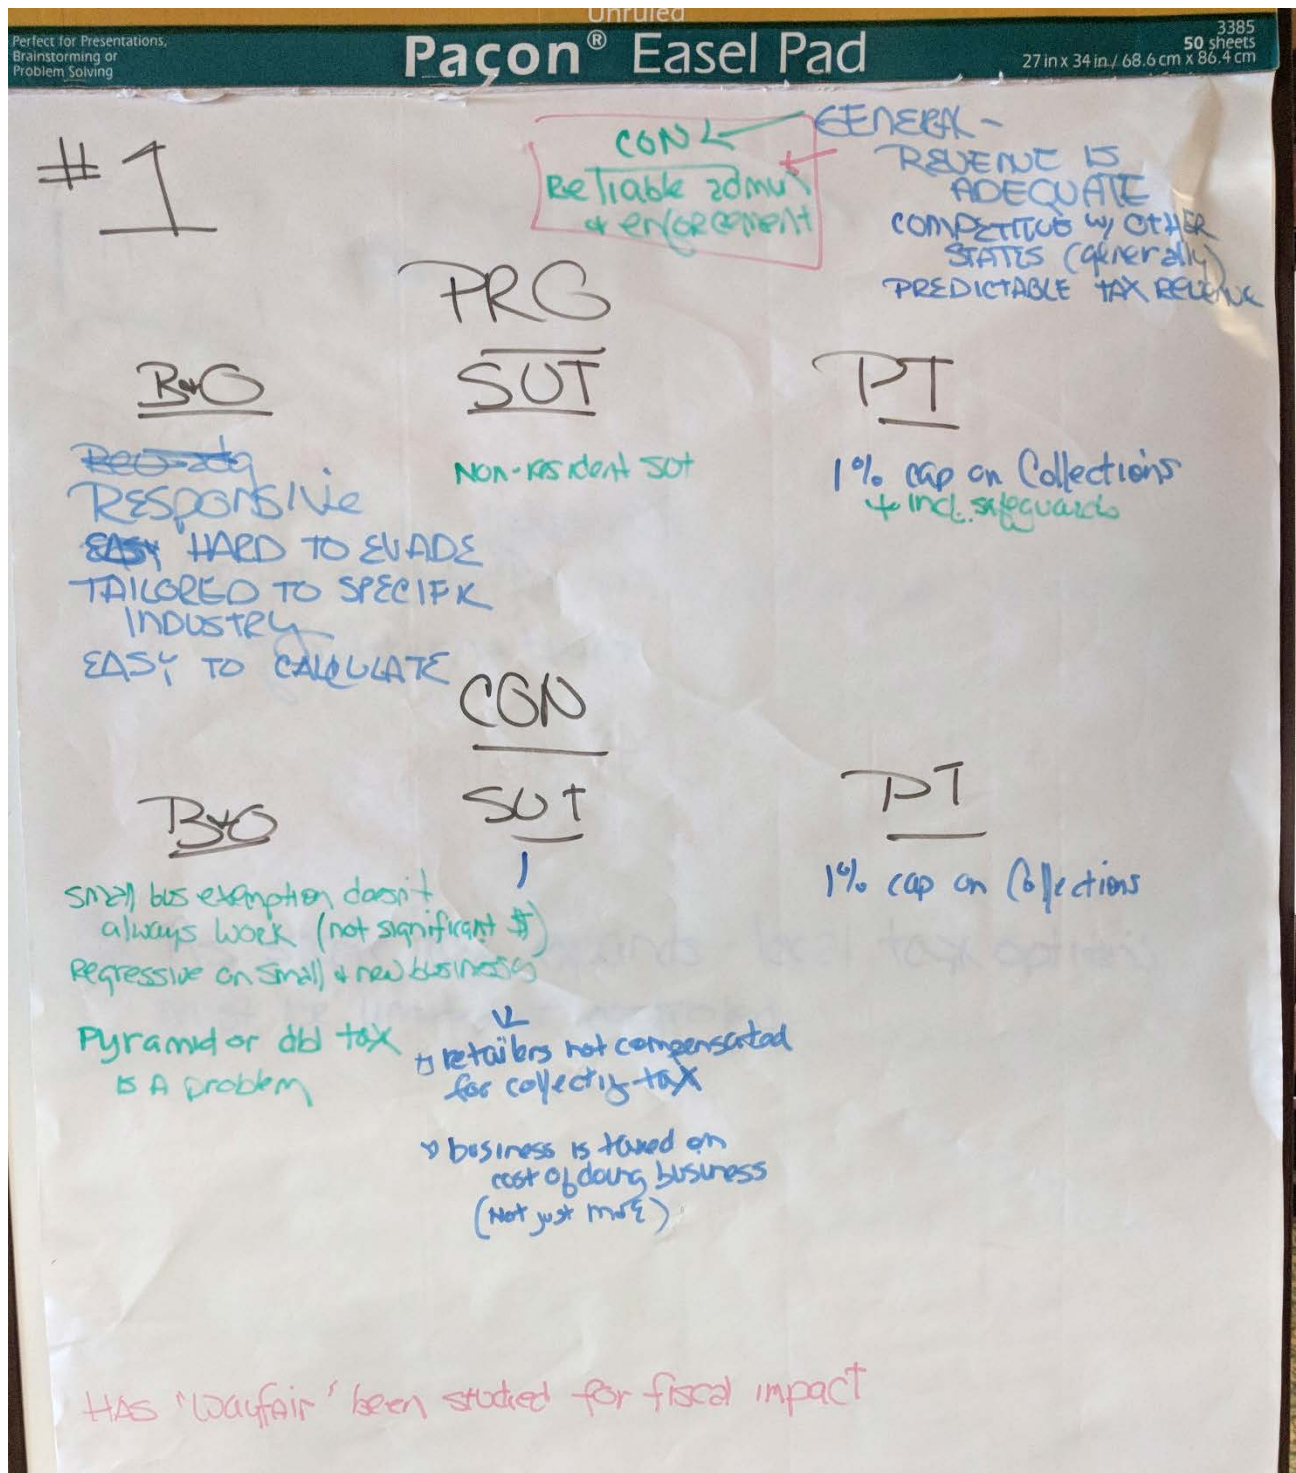 Unruled
Perfect for Presentations,
Brainstorming or
Problem Solving
Pacon® Easel Pad
3385
50 sheets
27 in x 34 in / 68.6 cm x 86.4 cm
#1
CON
Reliable admin
& enforcement
GENERAL -
REVENUE IS
ADEQUATE
COMPETITIVE w/ OTHER
STATES (generally)
PREDICTABLE TAX REVENUE
PRO
B+O
RESPONSIVE
EASY HARD TO EVADE
TAILORED TO SPECIFIC
INDUSTRY
EASY TO CALCULATE
SUT
Non-resident SUT
PT
1% cap on Collections
+ incl. safeguards
CON
B+O
Small bus exemption doesn't
always work (not significant $)
Regressive on small & new business
Pyramid or dbl tax
is A problem
SUT
retailers not compensated
for collectig tax
business is taxed on
cost of doing business
(Not just more)
PT
1% cap on Collections
HAS "Wayfair" been studied for fiscal impact